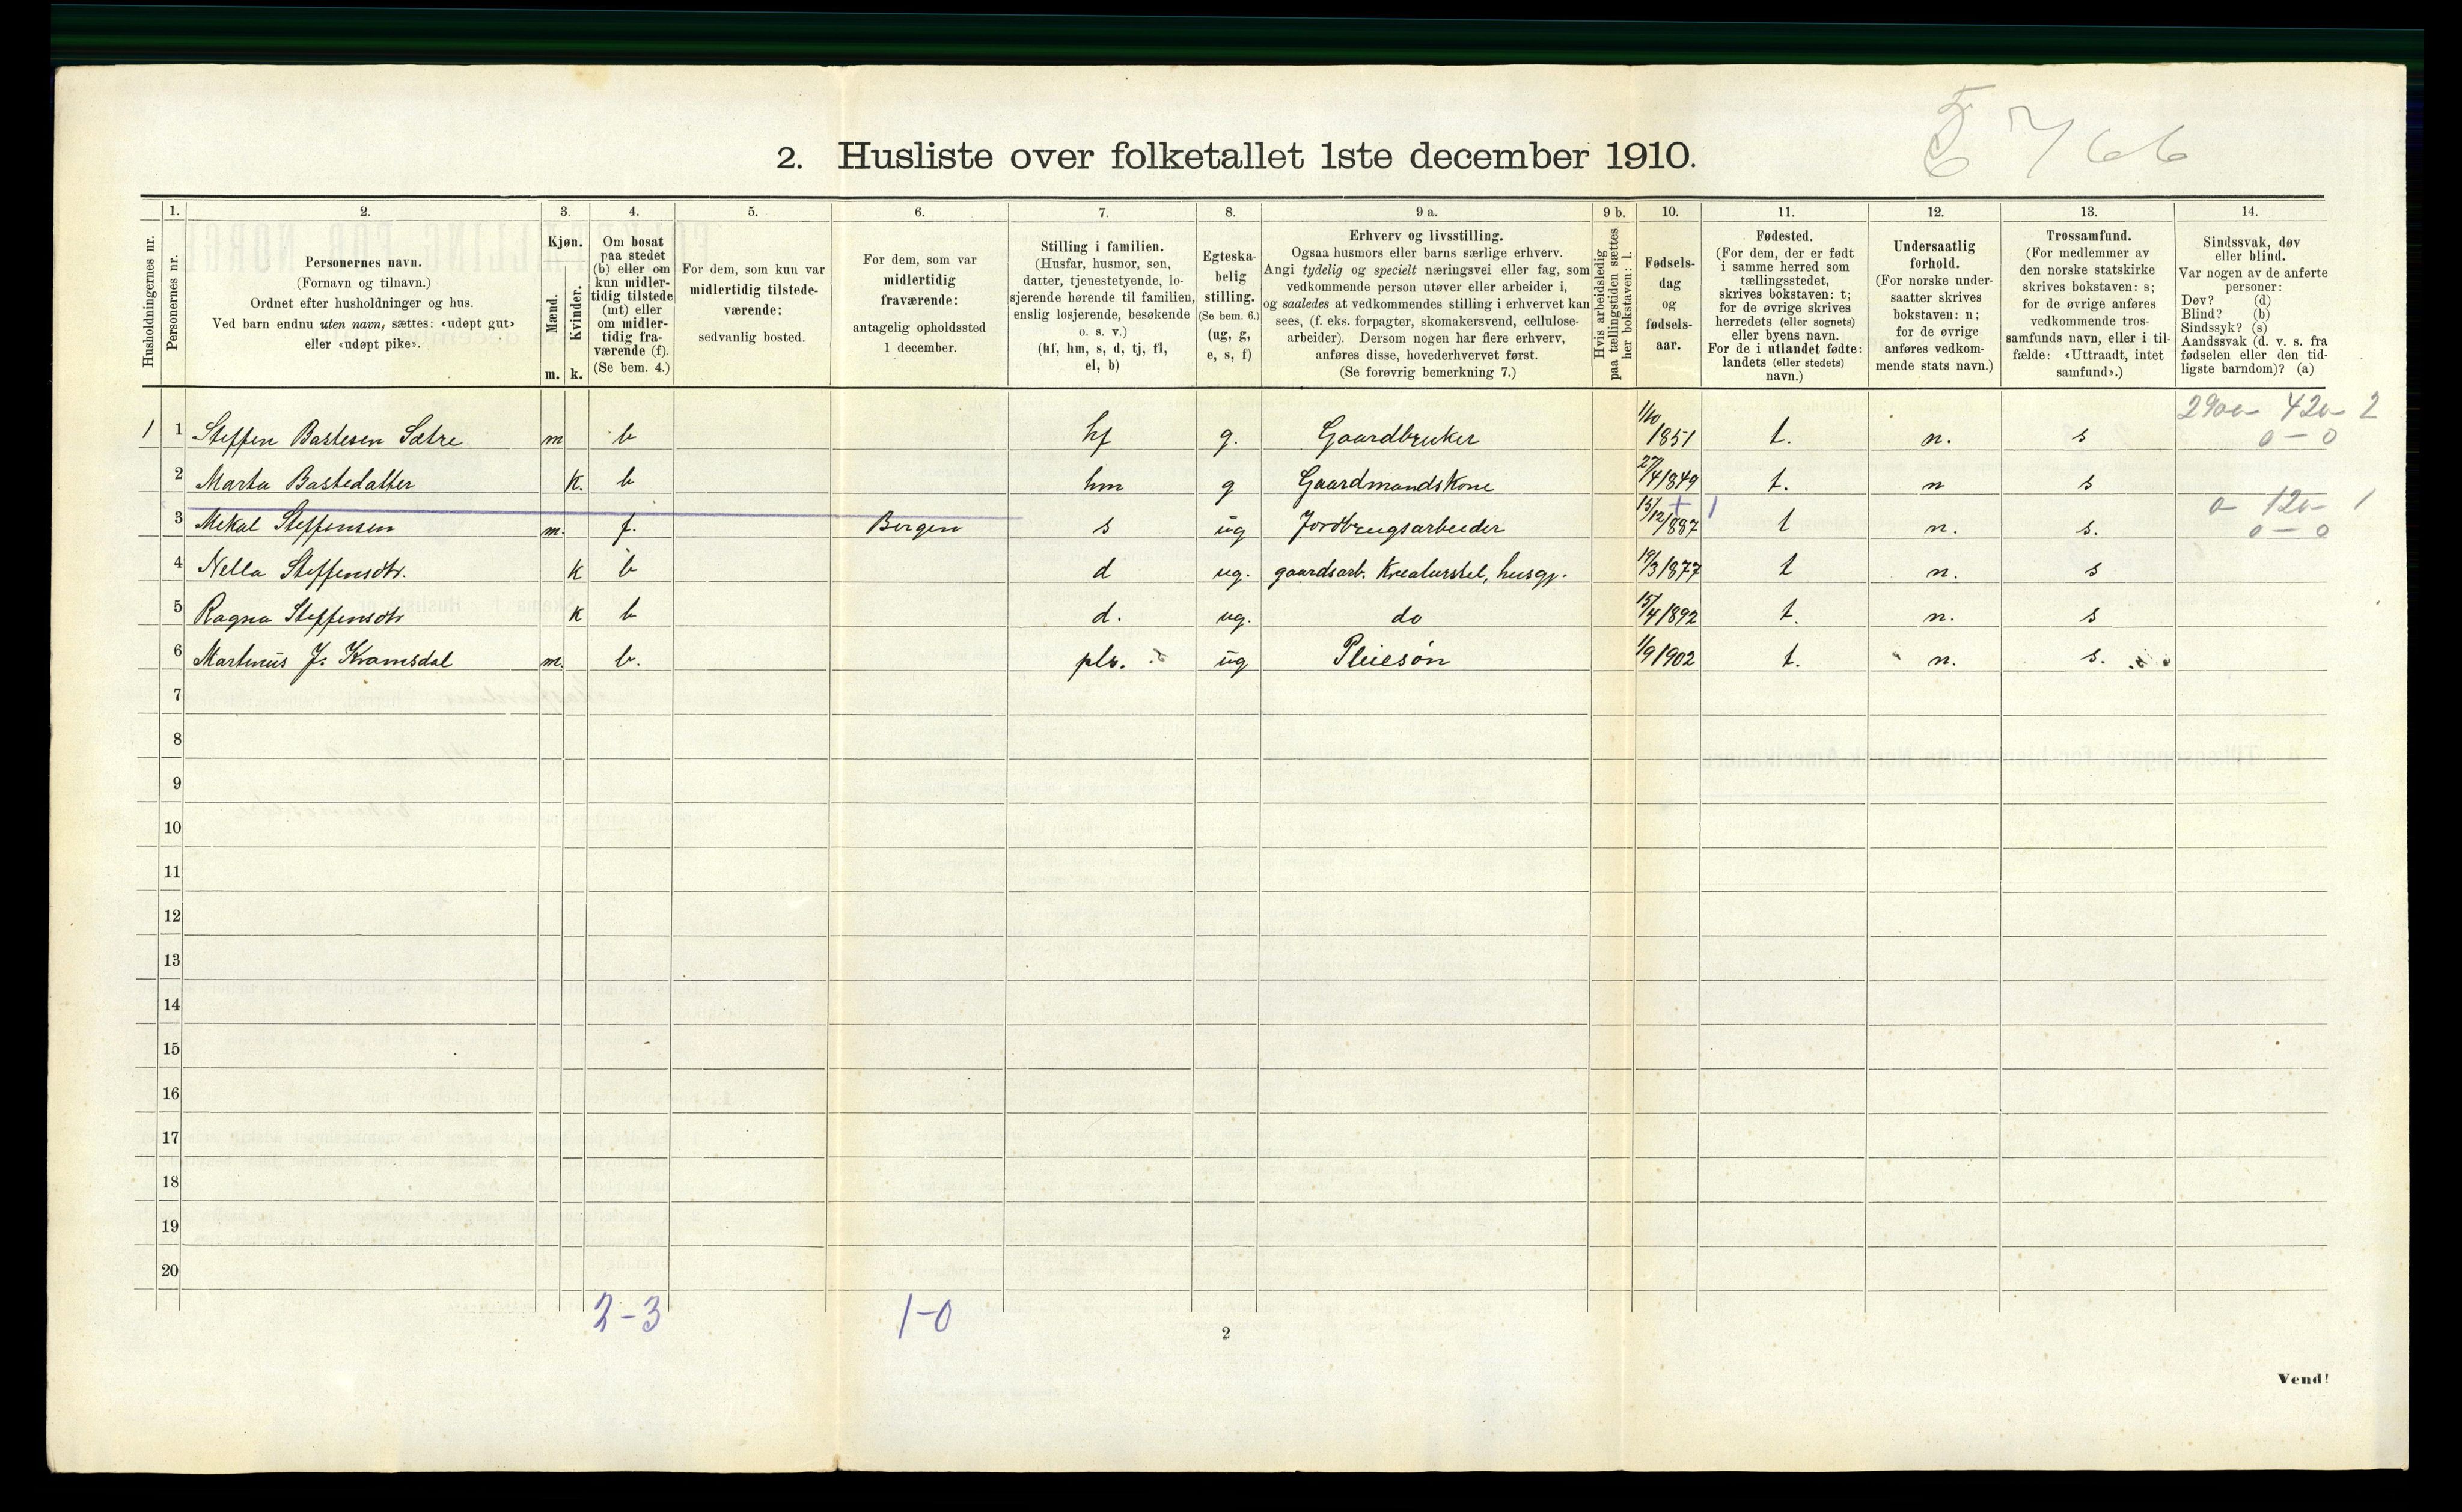 2. Husliste over folketallet 1ste december 1910.
766
Husholdningernes nr.
1.
Personernes nr.
2.
Personernes navn.
(Fornavn og tilnavn.)
Ordnet efter husholdninger og hus.
Ved barn endnu uten navn, sættes: «udøpt gut»
eller «udøpt pike».
3.
Kjøn.
Mænd.
Kvinder.
m. k.
4.
Om bosat
paa stedet
(b) eller om
kun midler-
tidig tilstede
(mt) eller
om midler-
tidig fra-
værende (f).
(Se bem. 4.)
5.
For dem, som kun var
midlertidig tilstede-
værende:
sedvanlig bosted.
6.
For dem, som var
midlertidig
fraværende:
antagelig opholdssted
1 december.
7.
Stilling i familien.
(Husfar, husmor, søn,
datter, tjenestetyende, lo-
sjerende hørende til familien,
enslig losjerende, besøkende
o. s. v.)
(hf, hm, s, d, tj, fl,
el, b)
8.
Egteska-
belig
stilling.
(Se bem. 6.)
(ug, g,
e, s, f)
9 a.
Erhverv og livsstilling.
Ogsaa husmors eller barns særlige erhverv.
Angi tydelig og specielt næringsvei eller fag, som
vedkommende person utøver eller arbeider i,
og saaledes at vedkommendes stilling i erhvervet kan
sees, (f. eks. forpagter, skomakersvend, cellulose-
arbeider). Dersom nogen har flere erhverv,
anføres disse, hovederhvervet først.
(Se forøvrig bemerkning 7.)
9 b.
Hvis arbeidsledig
paa tællingstiden sættes
her bokstaven: l.
10.
Fødsels-
dag
og
fødsels-
aar.
11.
Fødested.
(For dem, der er født
i samme herred som
tællingsstedet,
skrives bokstaven: t;
for de øvrige skrives
herredets (eller sognets)
eller byens navn.
For de i utlandet fødte:
landets (eller stedets)
navn.)
12.
Undersaatlig
forhold.
(For norske under-
saatter skrives
bokstaven: n;
for de øvrige
anføres vedkom-
mende stats navn.)
13.
Trossamfund.
(For medlemmer av
den norske statskirke
skrives bokstaven: s;
for de øvrige anføres
vedkommende tros-
samfunds navn, eller i til-
fælde: «Uttraadt, intet
samfund».)
14.
Sindssvak, døv
eller blind.
Var nogen av de anførte
personer:
Døv? (d)
Blind? (b)
Sindssyk? (s)
Aandssvak (d. v. s. fra
fødselen eller den tid-
ligste barndom)? (a)
2900- 420- 2
0 - 0
1 1 Steffen Bastesen Sætre m b hf g. Gaardbruker 1/10 1851 t. n. s
2 Marta Bastedatter k. b hm g Gaardmandskone 27/4 1849 t. n s
0- 120- 1
0 - 0
3 Mekal Steffensen m. f. Bergen s ug Jordbrugsarbeider 15/12/887 + 1 t n. s.
4 Nella Steffensdtr. k b d ug. gaardsarb. Kreaturstel, husgj. 19/3 1877 t n. s
5 Ragna Steffensdtr k b d. ug. do 15/4 1892 t. n. s
6 Martinus J. Kramsdal m. b. pls. ug Pleiesøn 1/9 1902 t. n. s.
7
8
9
10
11
12
13
14
15
16
17
18
19
20
2-3 1-0
2
Vend!